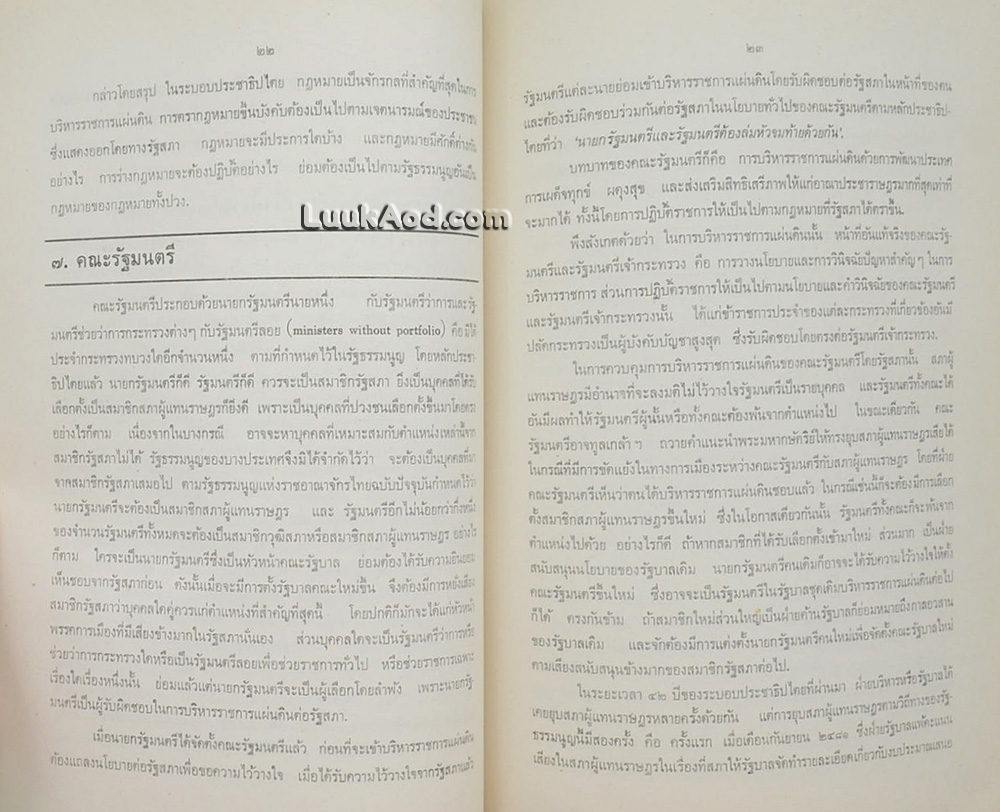 ๒๒
กล่าวโดยสรุป ในระบอบประชาธิปไตย กฎหมายเป็นจักรกลที่สำคัญที่สุดในการ
บริหารราชการแผ่นดิน การตรากฎหมายขึ้นบังคับต้องเป็นไปตามเจตนารมณ์ของประชาชน
ซึ่งแสดงออกโดยทางรัฐสภา กฎหมายจะมีประการใดบ้าง และกฎหมายมีศักดิ์ต่างกัน
อย่างไร การร่างกฎหมายจะต้องปฏิบัติอย่างไร ย่อมต้องเป็นไปตามรัฐธรรมนูญอันเป็น
กฎหมายของกฎหมายทั้งปวง.
LuukAod.com
๗. คณะรัฐมนตรี
คณะรัฐมนตรีประกอบด้วยนายกรัฐมนตรีนายหนึ่ง กับรัฐมนตรีว่าการและรัฐ-
มนตรีช่วยว่าการกระทรวงต่างๆ กับรัฐมนตรีลอย (ministers without portfolio) คือมิได้
ประจำกระทรวงทบวงใดอีกจำนวนหนึ่ง ตามที่กำหนดไว้ในรัฐธรรมนูญ โดยหลักประชา-
ธิปไตยแล้ว นายกรัฐมนตรีก็ดี รัฐมนตรีก็ดี ควรจะเป็นสมาชิกรัฐสภา ยิ่งเป็นบุคคลที่ได้รับ
เลือกตั้งเป็นสมาชิกสภาผู้แทนราษฎรก็ยิ่งดี เพราะเป็นบุคคลที่ปวงชนเลือกตั้งขึ้นมาโดยตรง
อย่างไรก็ตาม เนื่องจากในบางกรณี อาจจะหาบุคคลที่เหมาะสมกับตำแหน่งเหล่านี้จาก
สมาชิกรัฐสภาไม่ได้ รัฐธรรมนูญของบางประเทศจึงมิได้จำกัดไว้ว่า จะต้องเป็นบุคคลที่มา
จากสมาชิกรัฐสภาเสมอไป ตามรัฐธรรมนูญแห่งราชอาณาจักรไทยฉบับปัจจุบันกำหนดไว้ว่า
นายกรัฐมนตรีจะต้องเป็นสมาชิกสภาผู้แทนราษฎร และ รัฐมนตรีอีกไม่น้อยกว่ากึ่งหนึ่ง
ของจำนวนรัฐมนตรีทั้งหมดจะต้องเป็นสมาชิกวุฒิสภาหรือสมาชิกสภาผู้แทนราษฎร อย่างไร
ก็ตาม ใครจะเป็นนายกรัฐมนตรีซึ่งเป็นหัวหน้าคณะรัฐบาล ย่อมต้องได้รับความยินยอม
เห็นชอบจากรัฐสภาก่อน ดังนั้นเมื่อจะมีการตั้งรัฐบาลคณะใหม่ขึ้น จึงต้องมีการหยั่งเสียง
สมาชิกรัฐสภาว่าบุคคลใดคู่ควรแก่ตำแหน่งที่สำคัญที่สุดนี้ โดยปกติก็มักจะได้แก่หัวหน้า
พรรคการเมืองที่มีเสียงข้างมากในรัฐสภานั่นเอง ส่วนบุคคลใดจะเป็นรัฐมนตรีว่าการหรือ
ช่วยว่าการกระทรวงใดหรือเป็นรัฐมนตรีลอยเพื่อช่วยราชการทั่วไป หรือช่วยราชการเฉพาะ
เรื่องใดเรื่องหนึ่งนั้น ย่อมแล้วแต่นายกรัฐมนตรีจะเป็นผู้เลือกโดยลำพัง เพราะนายกรัฐ-
มนตรีเป็นผู้รับผิดชอบในการบริหารราชการแผ่นดินต่อรัฐสภา.
เมื่อนายกรัฐมนตรีได้จัดตั้งคณะรัฐมนตรีแล้ว ก่อนที่จะเข้าบริหารราชการแผ่นดิน
ต้องแถลงนโยบายต่อรัฐสภาเพื่อขอความไว้วางใจ เมื่อได้รับความไว้วางใจจากรัฐสภาแล้ว
๒๓
รัฐมนตรีแต่ละนายย่อมเข้าบริหารราชการแผ่นดินโดยรับผิดชอบต่อรัฐสภาในหน้าที่ของตน
และต้องรับผิดชอบร่วมกันต่อรัฐสภาในนโยบายทั่วไปของคณะรัฐมนตรีตามหลักประชาธิป-
ไตยที่ว่า 'นายกรัฐมนตรีและรัฐมนตรีต้องล่มหัวจมท้ายด้วยกัน'.
บทบาทของคณะรัฐมนตรีก็คือ การบริหารราชการแผ่นดินด้วยการพัฒนาประเทศ
การเผด็จทุกข์ ผดุงสุข และส่งเสริมสิทธิเสรีภาพให้แก่อาณาประชาราษฎรมากที่สุดเท่าที่
จะมากได้ ทั้งนี้โดยการปฏิบัติราชการให้เป็นไปตามกฎหมายที่รัฐสภาได้ตราขึ้น.
พึงสังเกตด้วยว่า ในการบริหารราชการแผ่นดินนั้น หน้าที่อันแท้จริงของคณะรัฐ-
มนตรีและรัฐมนตรีเจ้ากระทรวง คือ การวางนโยบายและการวินิจฉัยปัญหาสำคัญๆ ในการ
บริหารราชการ ส่วนการปฏิบัติราชการให้เป็นไปตามนโยบายและคำวินิจฉัยของคณะรัฐมนตรี
และรัฐมนตรีเจ้ากระทรวงนั้น ได้แก่ข้าราชการประจำของแต่ละกระทรวงที่เกี่ยวข้องอันมี
ปลัดกระทรวงเป็นผู้บังคับบัญชาสูงสุด ซึ่งรับผิดชอบโดยตรงต่อรัฐมนตรีเจ้ากระทรวง.
ในการควบคุมการบริหารราชการแผ่นดินของคณะรัฐมนตรีโดยรัฐสภานั้น สภาผู้
แทนราษฎรมีอำนาจที่จะลงมติไม่ไว้วางใจรัฐมนตรีเป็นรายบุคคล และรัฐมนตรีทั้งคณะได้
อันมีผลทำให้รัฐมนตรีผู้นั้นหรือทั้งคณะต้องพ้นจากตำแหน่งไป ในขณะเดียวกัน คณะ
รัฐมนตรีอาจทูลเกล้าฯ ถวายคำแนะนำพระมหากษัตริย์ให้ทรงยุบสภาผู้แทนราษฎรเสียได้
ในกรณีที่มีการขัดแย้งในทางการเมืองระหว่างคณะรัฐมนตรีกับสภาผู้แทนราษฎร โดยที่ฝ่าย
คณะรัฐมนตรีเห็นว่าตนได้บริหารราชการแผ่นดินชอบแล้ว ในกรณีเช่นนี้ก็จะต้องมีการเลือก
ตั้งสมาชิกสภาผู้แทนราษฎรขึ้นใหม่ ซึ่งในโอกาสเดียวกันนั้น รัฐมนตรีทั้งคณะก็จะพ้นจาก
ตำแหน่งไปด้วย อย่างไรก็ดี ถ้าหากสมาชิกที่ได้รับเลือกตั้งเข้ามาใหม่ ส่วนมาก เป็นฝ่าย
สนับสนุนนโยบายของรัฐบาลเดิม นายกรัฐมนตรีคนเดิมก็อาจจะได้รับความไว้วางใจให้ตั้ง
คณะรัฐมนตรีขึ้นใหม่ ซึ่งอาจจะเป็นรัฐมนตรีในรัฐบาลชุดเดิมบริหารราชการแผ่นดินต่อไป
ก็ได้ ตรงกันข้าม ถ้าสมาชิกใหม่ส่วนใหญ่เป็นฝ่ายค้านรัฐบาลก็ย่อมหมายถึงกาลอวสาน
ของรัฐบาลเดิม และจักต้องมีการแต่งตั้งนายกรัฐมนตรีคนใหม่เพื่อจัดตั้งคณะรัฐบาลใหม่
ตามเสียงสนับสนุนข้างมากของสมาชิกรัฐสภาต่อไป.
ในระยะเวลา ๔๒ ปีของระบอบประชาธิปไตยที่ผ่านมา ฝ่ายบริหารหรือรัฐบาลได้
เคยยุบสภาผู้แทนราษฎรหลายครั้งด้วยกัน แต่การยุบสภาผู้แทนราษฎรตามวิถีทางของรัฐ-
ธรรมนูญนี้มีสองครั้ง คือ ครั้งแรก เมื่อเดือนกันยายน ๒๔๘๑ ซึ่งฝ่ายรัฐบาลแพ้คะแนน
เสียงในสภาผู้แทนราษฎรในเรื่องที่สภาให้รัฐบาลจัดทำรายละเอียดเกี่ยวกับงบประมาณเสนอ